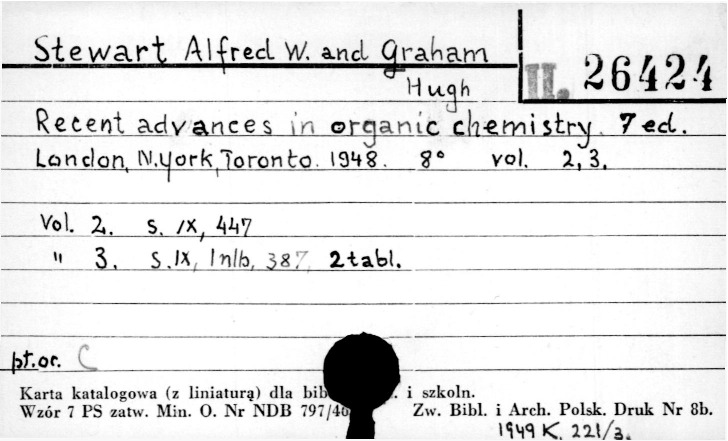 Stewart Alfred W. and Graham
Hugh
II. 26424
Recent advances in organic chemistry. 7 ed.
London, N.York, Toronto. 1948. 8° vol. 2,3.
Vol. 2. S. IX, 447
" 3. S. IX, 1nlb, 387, 2 tabl.
pt.or. C
Karta katalogowa (z liniaturą) dla bib i szkoln.
Wzór 7 PS zatw. Min. O. Nr NDB 797/46 Zw. Bibl. i Arch. Polsk. Druk Nr 8b.
1949 K. 221/3.